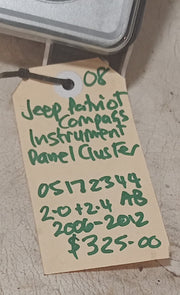 08
Jeep Patriot
Compass
Instrument
Panel Cluster
05172344
AB
2.0+2.4
2006-2012
$325.00